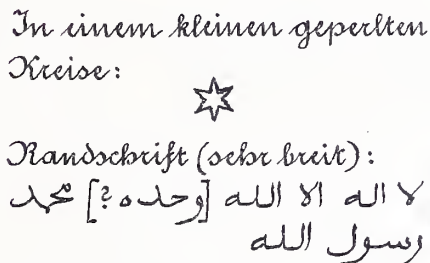 In einem kleinen geperlten
Kreise:
Randschrift (sehr breit):
لا اله الا الله [وحده ?] محمد
رسول الله